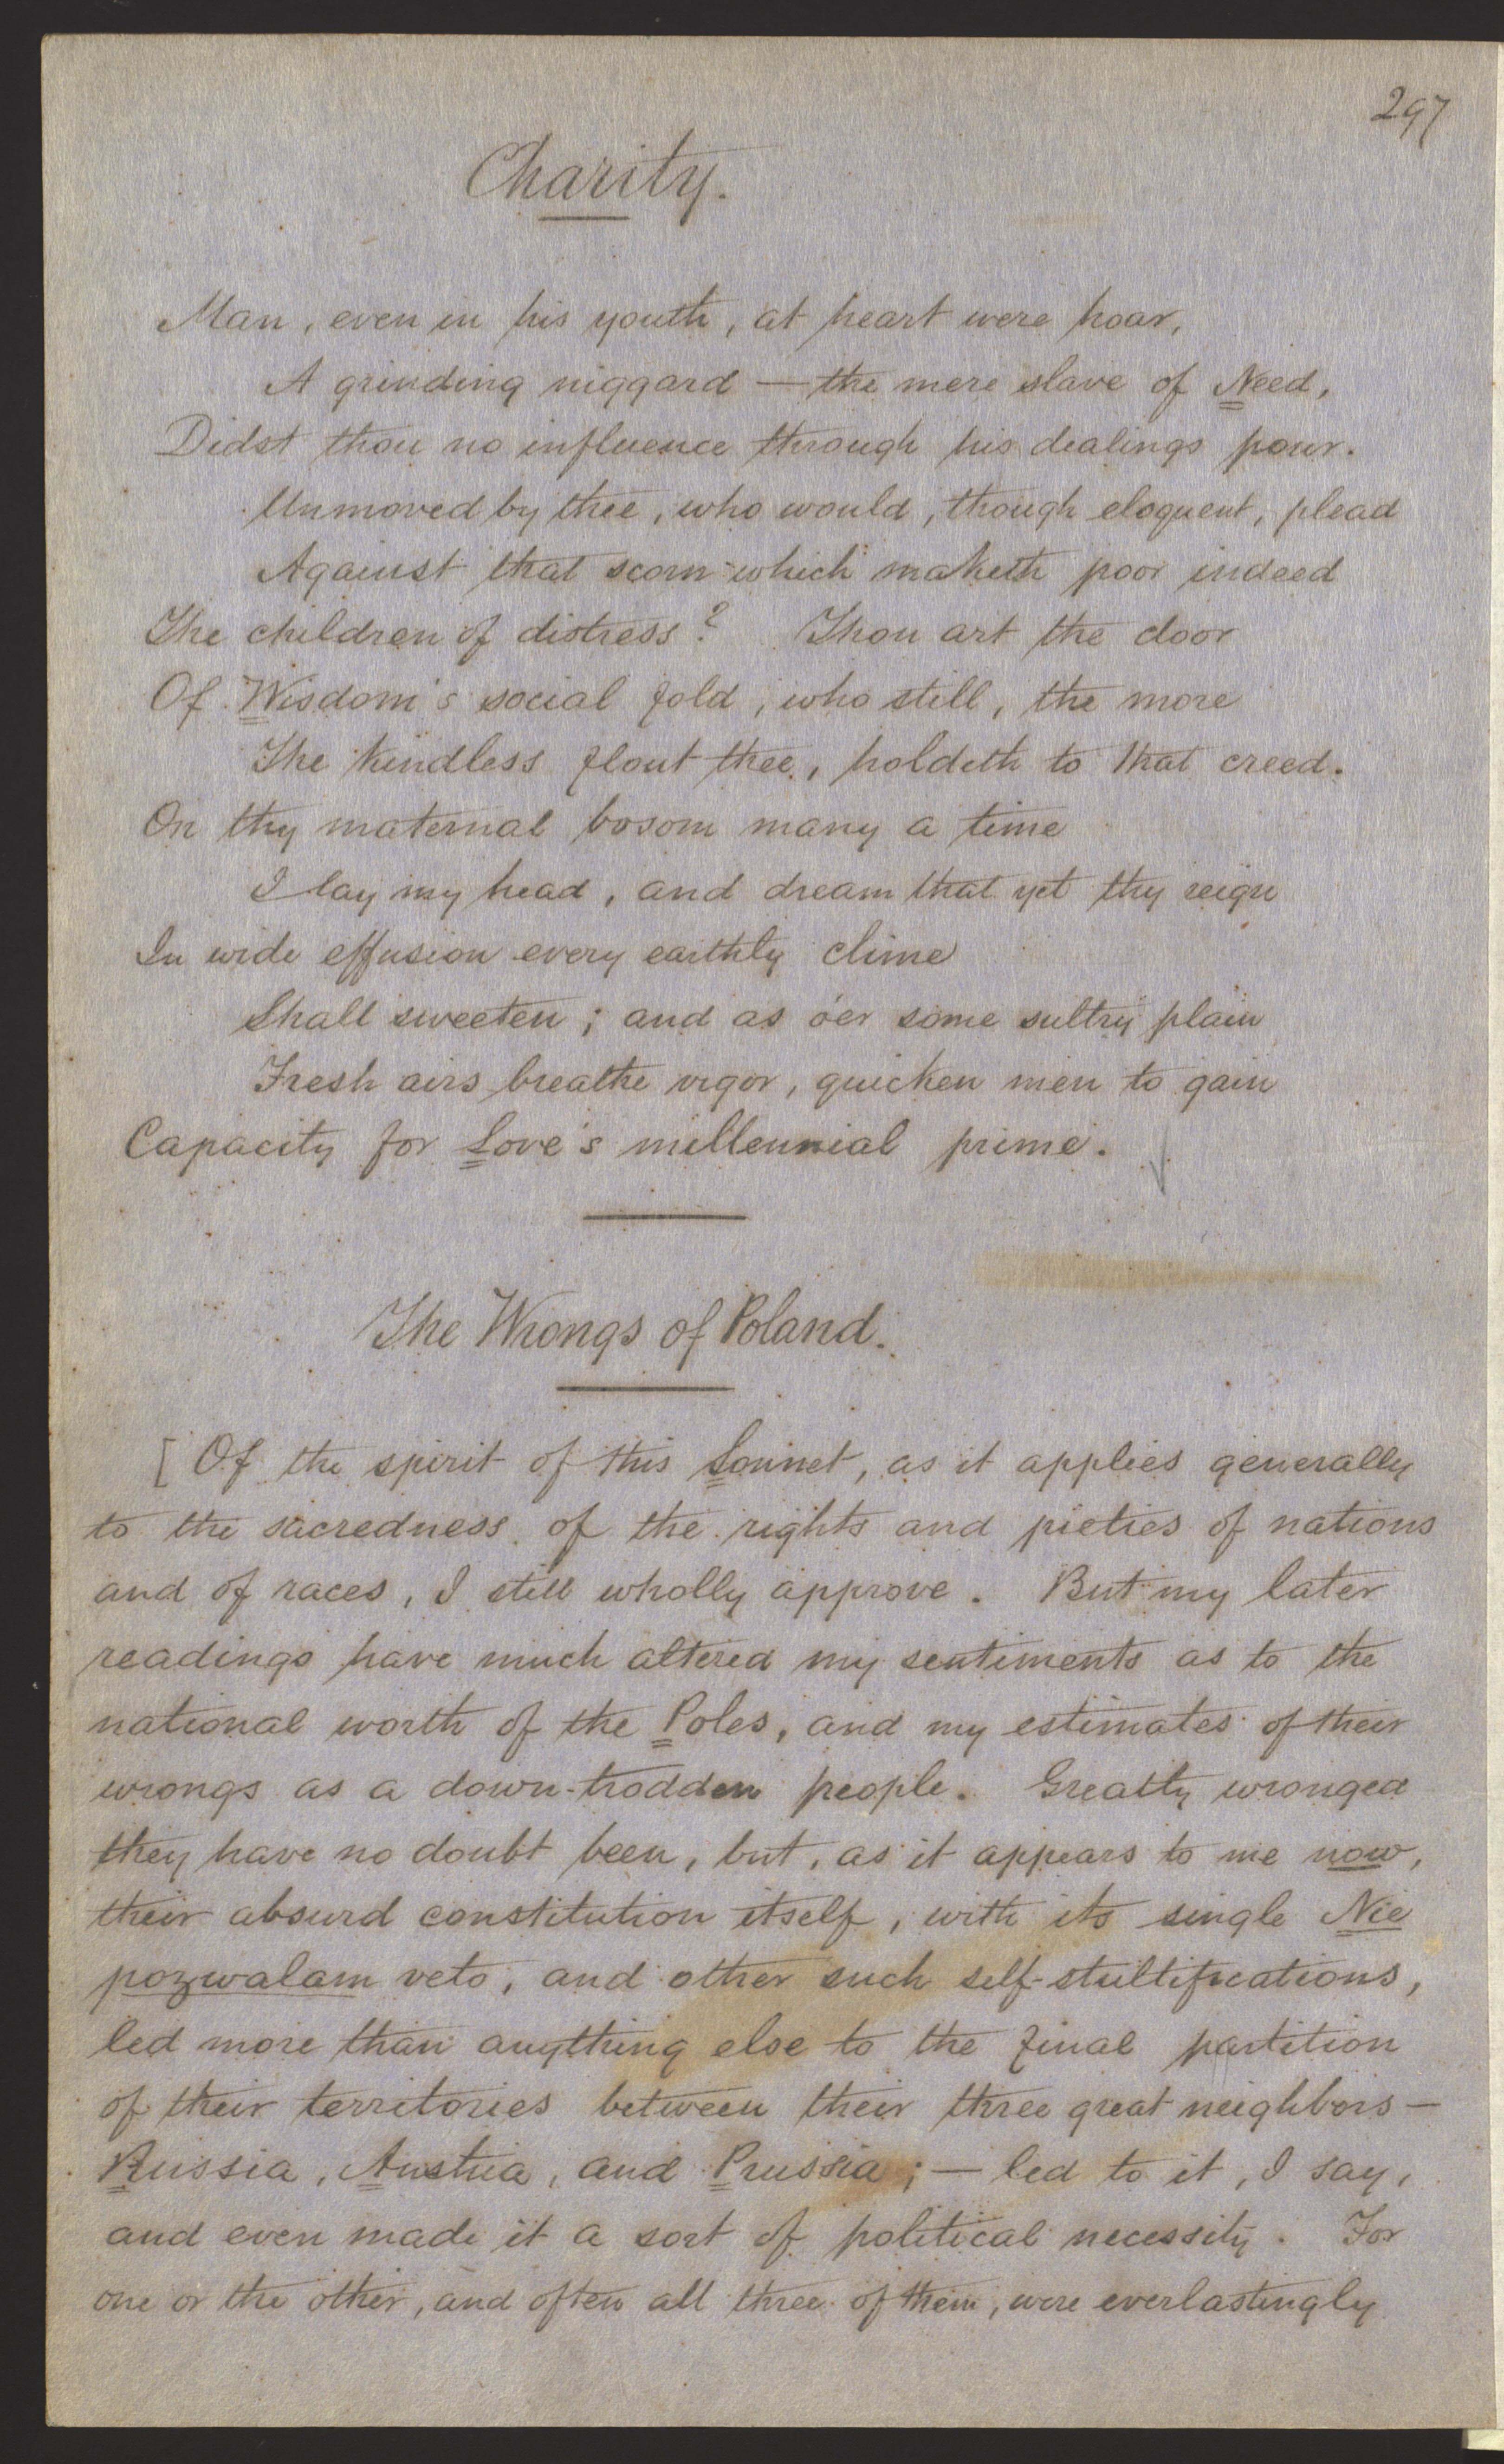 297
Charity.
Man, even in his youth, at heart were hoar,
A grinding niggard — the mere slave of Need,
Didst thou no influence through his dealings pour.
Unmoved by thee, who would, though eloquent, plead
Against that scorn which maketh poor indeed
The children of distress? Thou art the door
Of Wisdom's social fold, who still, the more
The kindless flout thee, holdeth to that creed.
On thy maternal bosom many a time
I lay my head, and dream that yet thy reign
In wide effusion every earthly clime
Shall sweeten; and as o'er some sultry plain
Fresh airs breathe vigor, quicken men to gain
Capacity for Love's millennial prime.
The Wrongs of Poland.
[Of the spirit of this Sonnet, as it applies generally
to the sacredness of the rights and pieties of nations
and of races, I still wholly approve. But my later
readings have much altered my sentiments as to the
national worth of the Poles, and my estimates of their
wrongs as a down-trodden people. Greatly wronged
they have no doubt been, but, as it appears to me now,
their absurd constitution itself, with its single Nie
pozwalam veto, and other such self-stultifications,
led more than anything else to the final partition
of their territories between their three great neighbors —
Russia, Austria, and Prussia; — led to it, I say,
and even made it a sort of political necessity. For
one or the other, and often all three of them, were everlastingly